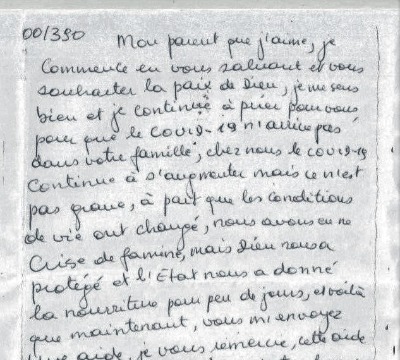 00/390
Mon parent que j'aime, je
commence en vous saluant et vous
souhaiter la paix de Dieu, je me sens
bien et je continue à prier pour vous
pour que le COVID-19 n'arrive pas
dans votre famille, chez nous le COVID-19
Continue à s'augmenter mais ce n'est
pas grave, à part que les conditions
de vie ont changé, nous avons eu ne
Crise de famine, mais Dieu nous a
protégé et l'Etat nous a donné
la nourriture pour peu de jours, et voilà
que maintenant, vous m'envoyez
une aide, je vous remercie, cette aide